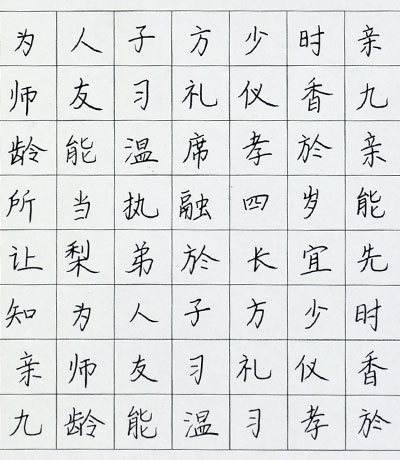 为人子方少时亲
师友习礼仪香九
龄能温席孝於亲
所当执融四岁能
让梨弟於长宜先
知为人子方少时
亲师友习礼仪香
九龄能温习孝於